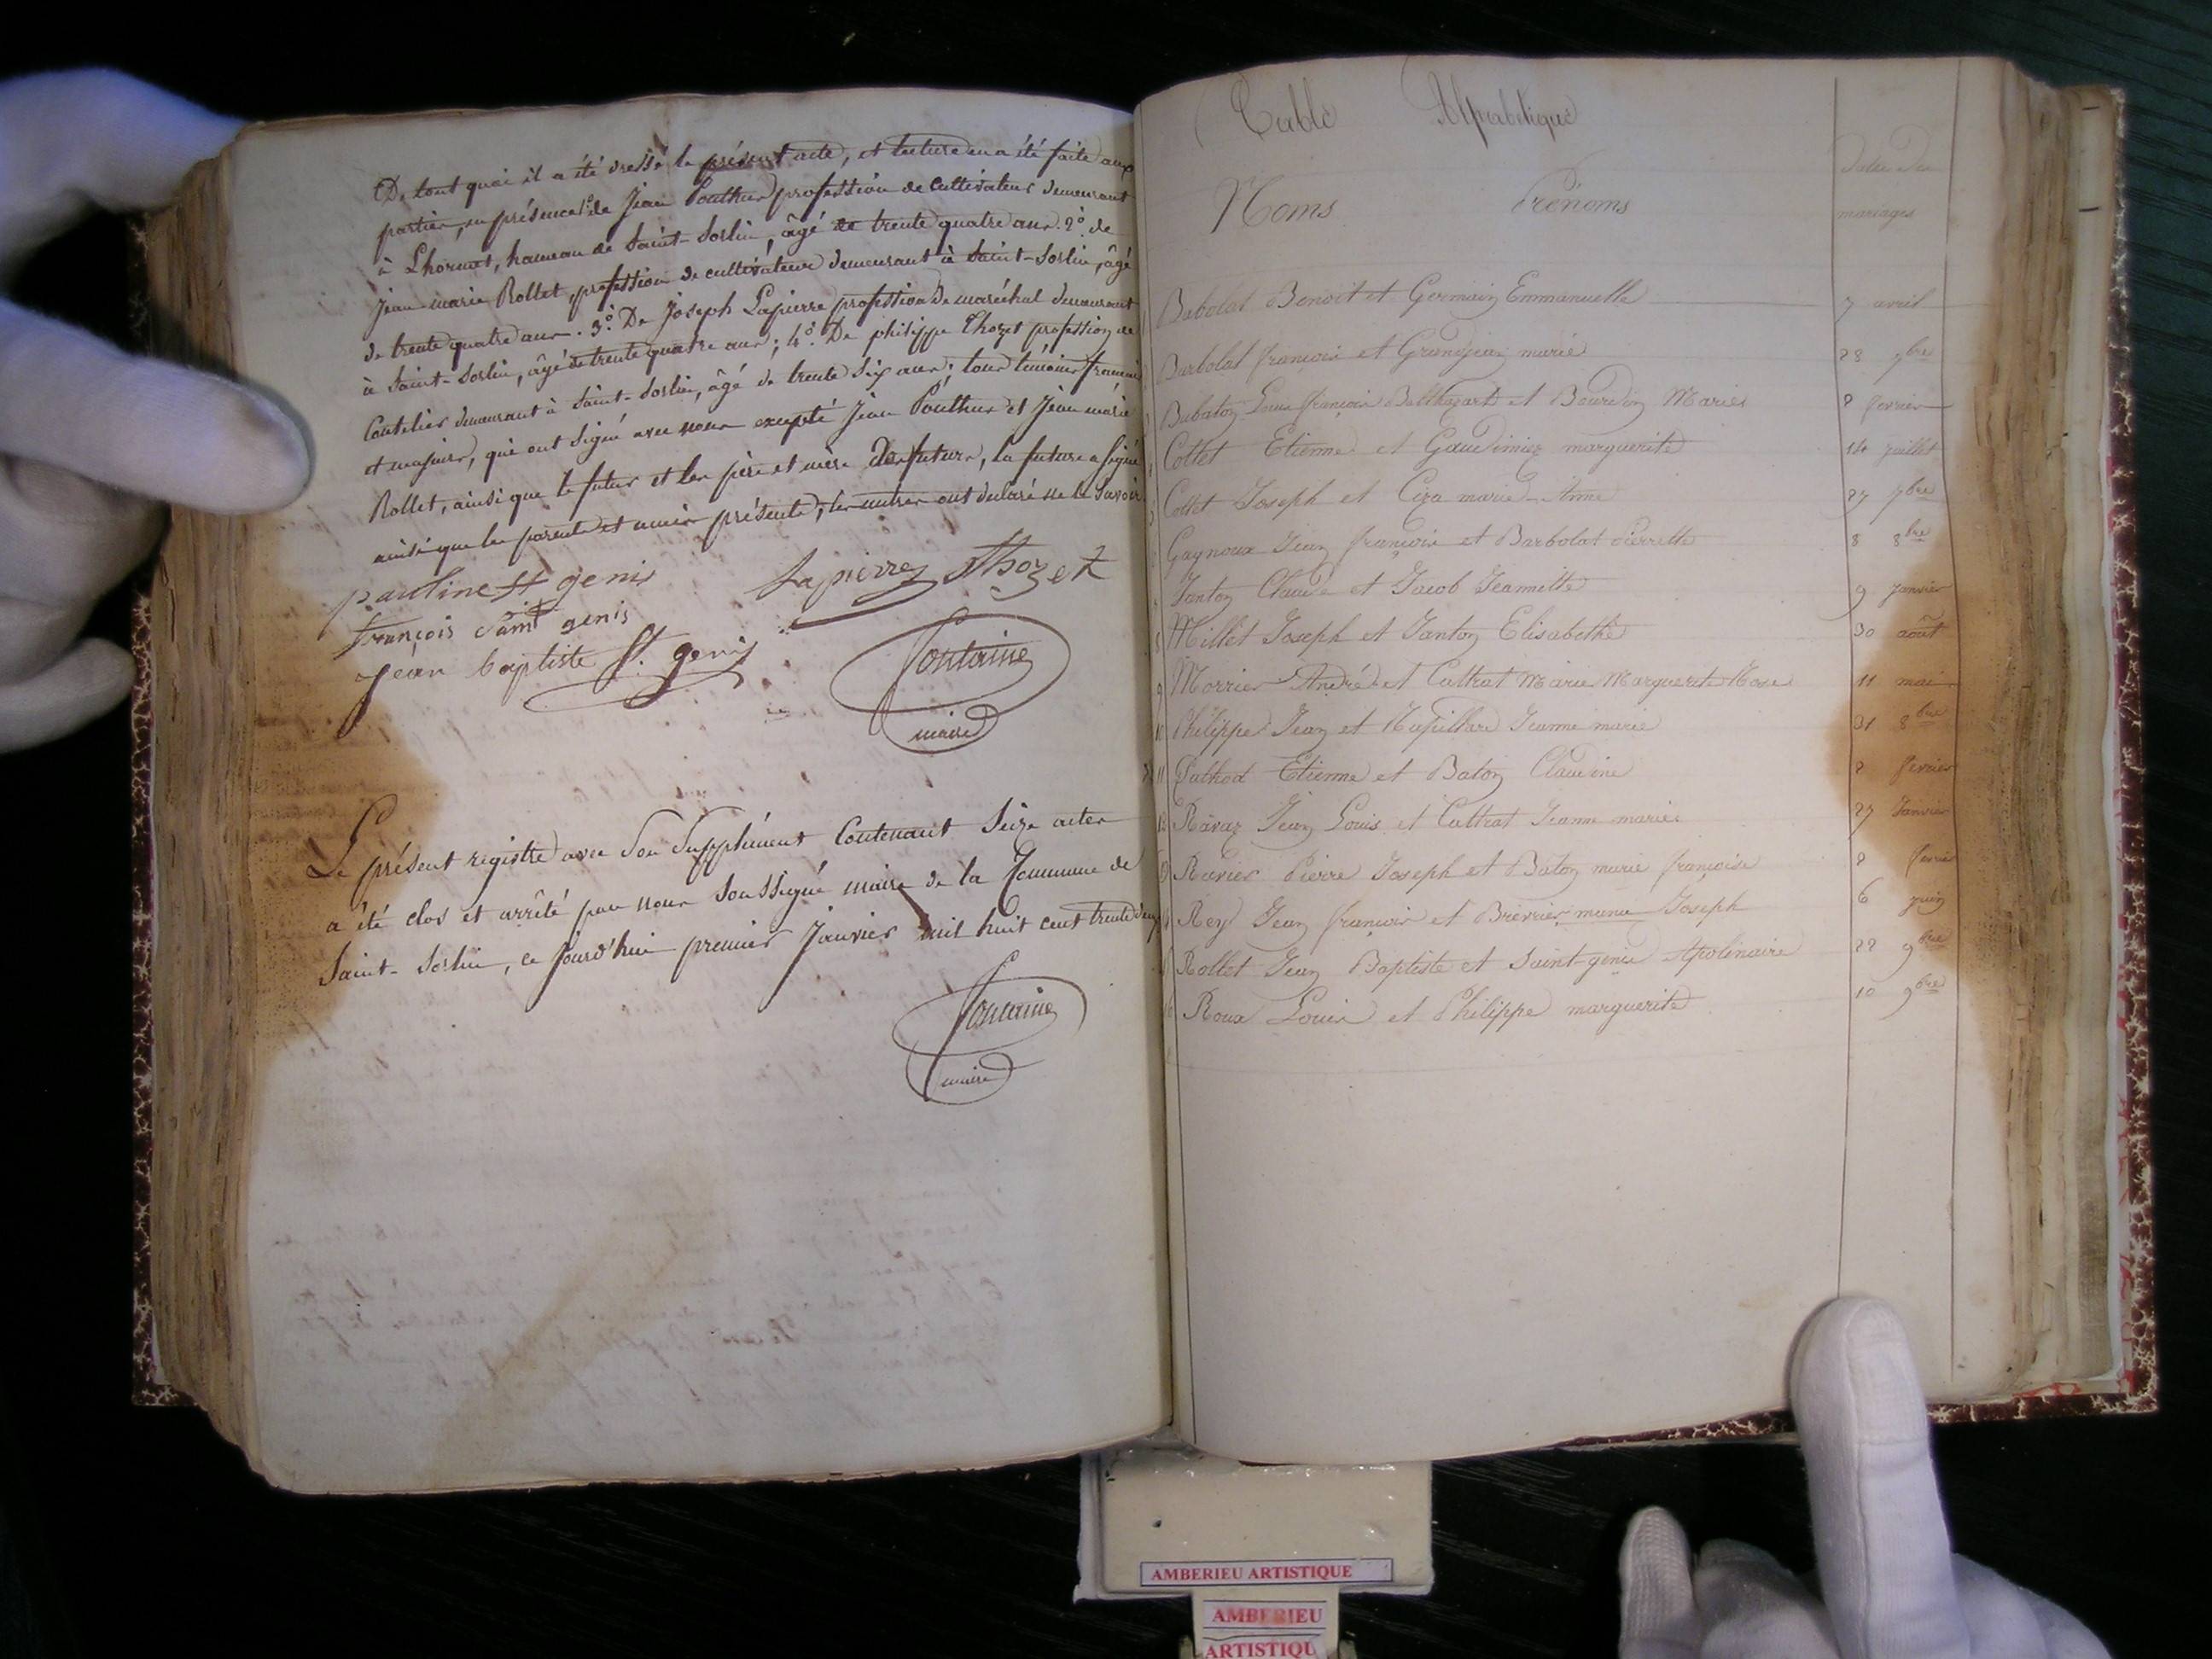 De tout quoi il a été dressé le présent acte, et lecture en a été faite aux
parties, en présence 1º de Jean Pouthier profession de cultivateur demeurant
à Lhormet, hameau de Saint-Sorlin, âgé de trente quatre ans. 2º. de
Jean marie Rollet, profession de cultivateur demeurant à Saint-Sorlin, âgé
de trente quatre ans. 3º. De Joseph Lapierre profession de maréchal demeurant
à Saint-Sorlin, âgé de trente quatre ans; 4º. De philippe Thozet profession de
Coutelier demeurant à Saint-Sorlin, âgé de trente Six ans; tous témoins français
et majeurs, qui ont Signé avec nous excepté Jean Pouthier et Jean marie
Rollet, ainsi que le futur et les père et mère des futurs, la future a Signé
ainsi que les parents et amis présents, les autres ont declaré ne le Savoir
pauline St genis Lapierre Thozet
françois Saint genis
jean baptiste St. genis Fontaine
maire
Le présent registre avec Son Supplément Contenant Seize actes
a été clos et arrêté par nous Soussigné maire de la Commune de
Saint-Sorlin, ce jourd'hui premier Janvier mil huit cent trente deux
Fontaine
maire
Table Alphabétique
Noms Prénoms Dates des
mariages
Babolat Benoit et Germain Emmanuelle 7 avril
Barbolat françois et Grandjean marie 28 7bre
Bubaton Louis françois Balthazard et Bourdin Marie 8 fevrier
Collet Etienne et marguerite 14 juillet
Collet Joseph et Ciza marie Anne 27 7bre
Gagnoux Jean françois et Barbolat Pierrette 8 8bre
Janton Claude et Jacob Jeannette 9 janvier
8 Millet Joseph et Janton Elisabethe 30 août
9 Morrier André et Cattrat Marie Marguerite Rose 11 mai
10 Philippe Jean et Jeanne marie 31 8bre
11 Puthod Etienne et Baton Claudine 8 fevrier
12 Ravaz Jean Louis et Cattrat Jeanne marie 27 Janvier
13 Ravier Pierre Joseph et Baton marie françoise 8 fevrier
Rey Jean françois et Brevrier marie Joseph 6 juin
Rollet Jean Baptiste et Saint-genis Apolinaire 22 9bre
16 Roux Louis et Philippe marguerite 10 9bre
AMBERIEU ARTISTIQUE
AMBERIEU
ARTISTIQU